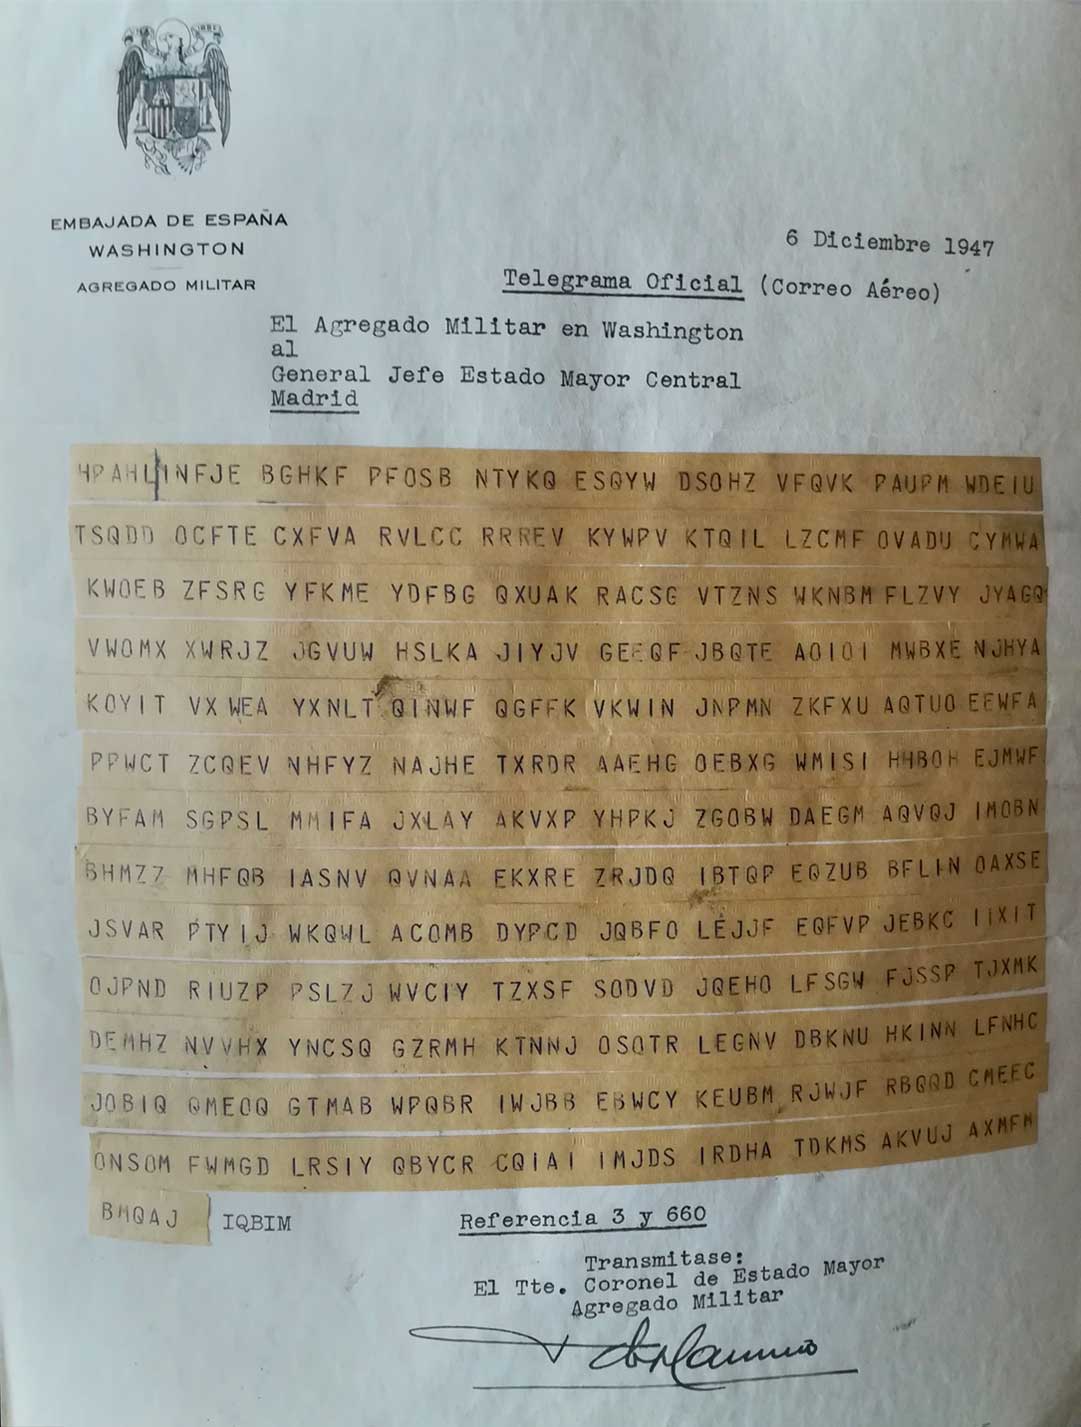 EMBAJADA DE ESPAÑA
WASHINGTON
AGREGADO MILITAR
6 Diciembre 1947
Telegrama Oficial (Correo Aéreo)
El Agregado Militar en Washington
al
General Jefe Estado Mayor Central
Madrid
HPAHL INFJE BGHKF PFOSB NTYKQ ESQYW DSOHZ VFQVK PAUPM WDEIU
TSQDD OCFTE CXFVA RVLCC RRREV KYWPV KTQIL LZCMF OVADU CYMWA
KWOEB ZFSRG YFKME YDFBG QXUAK RACSG VTZNS WKNBM FLZVY JYAGQ
VWOMX XWRJZ JGVUW HSLKA JIYJV GEEQF JBQTE AOIOI MWBXE NJHYA
KOYIT VXWEA YXNLT QINWF QGFFK VKWIN JNPMN ZKFXU AQTUO EEWFA
PPWCT ZCQEV NHFYZ NAJHE TXRDR AAEHG OEBXG WMISI HHBOH EJMWF
BYFAM SGPSL MMIFA JXLAY AKVXP YHPKJ ZGOBW DAEGM AQVQJ IMOBN
BHMZZ MHFQB IASNV QVNAA EKXRE ZRJDQ IBTQP EQZUB BFLIN OAXSE
JSVAR PTYIJ WKQWL ACOMB DYPCD JQBFO LEJJF EQFVP JEBKC IIXIT
OJPND RIUZP PSLZJ WVCIY TZXSF SODVD JQEHO LFSGW FJSSP TJXMK
DEMHZ NVVHX YNCSQ GZRMH KTNNJ OSOTR LEGNV DBKNU HKINN LFNHC
JOBIQ QMEOQ GTMAB WPQBR IWJBB EBWCY KEUBM RJWJF RBQQD CMEEC
ONSOM FWMGD LRSIY QBYCR CQIAI IMJDS IRDHA TDKMS AKVUJ AXMFM
BMQAJ IQBIM
Referencia 3 y 660
Transmitase:
El Tte. Coronel de Estado Mayor
Agregado Militar